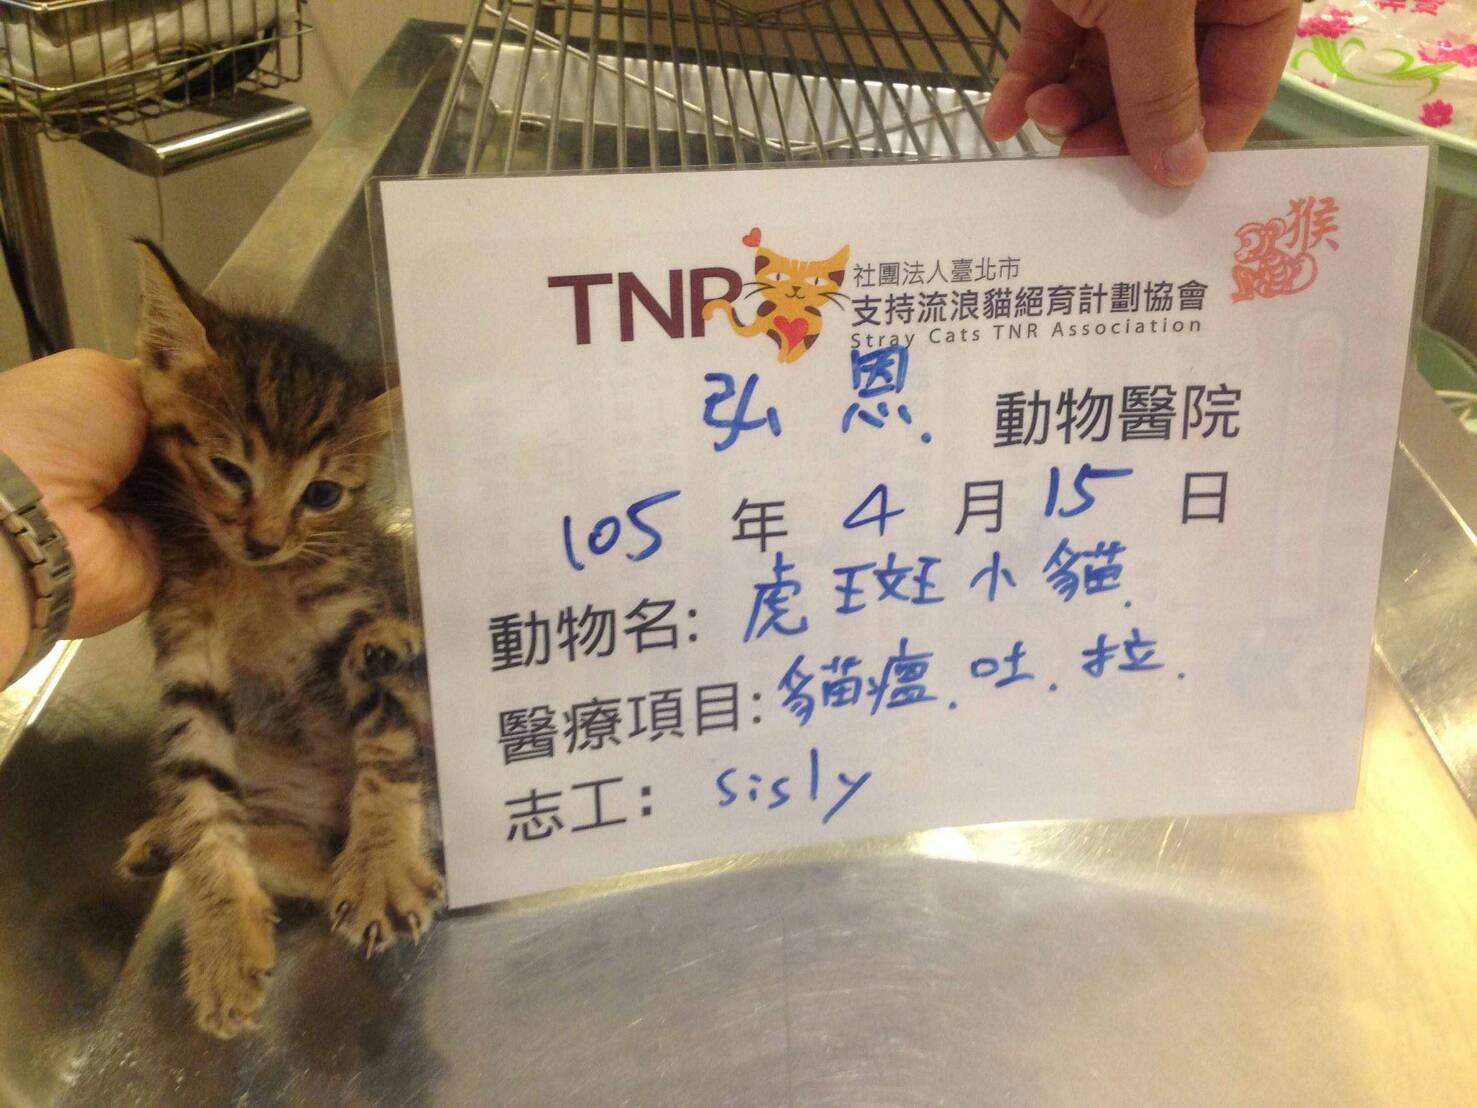 TNR
社團法人臺北市
支持流浪貓絕育計劃協會
Stray Cats TNR Association
猴
弘恩. 動物醫院
105 年 4 月 15 日
動物名: 虎斑小貓.
醫療項目: 貓瘟.吐.拉.
志工: sisly